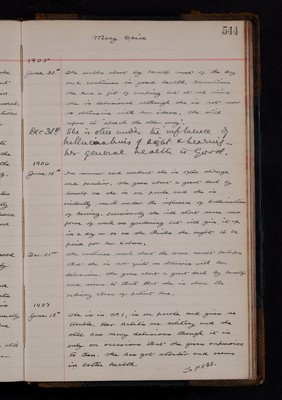 544
Mary Price
1905
June 30th She walks about by herself most of the day
and continues in good health. Sometimes
she has a fit of and at all times
she is delusional although she is not now
so with her ideas. She will
upon it "speak the other way".
Dec 31st She is often under the influence of
hallucinations of sight & hearing -
her general health is Good.
1906
June 15th In manner and conduct she is often strange
and peculiar. She goes about a great deal by
herself as she is on parole and she is
evidently much under the influence of hallucinations
of hearing. Occasionally she will start some new
form of work as gardening but will give it up
in a day or so as she thinks she ought to be
paid for her labour.
Dec. 21st She continues much about the same except perhaps
that she is not quite so with her
delusions. She goes about a great deal by herself
and seems to think that she is above the
ordinary class of patient here.
1907
June 18th She is in M1, is on parole and gives no
trouble. Her habits are solitary and she
still has many delusions though it is
only on occasions that she gives expression
to them. She has got stouter and seems
in better health.